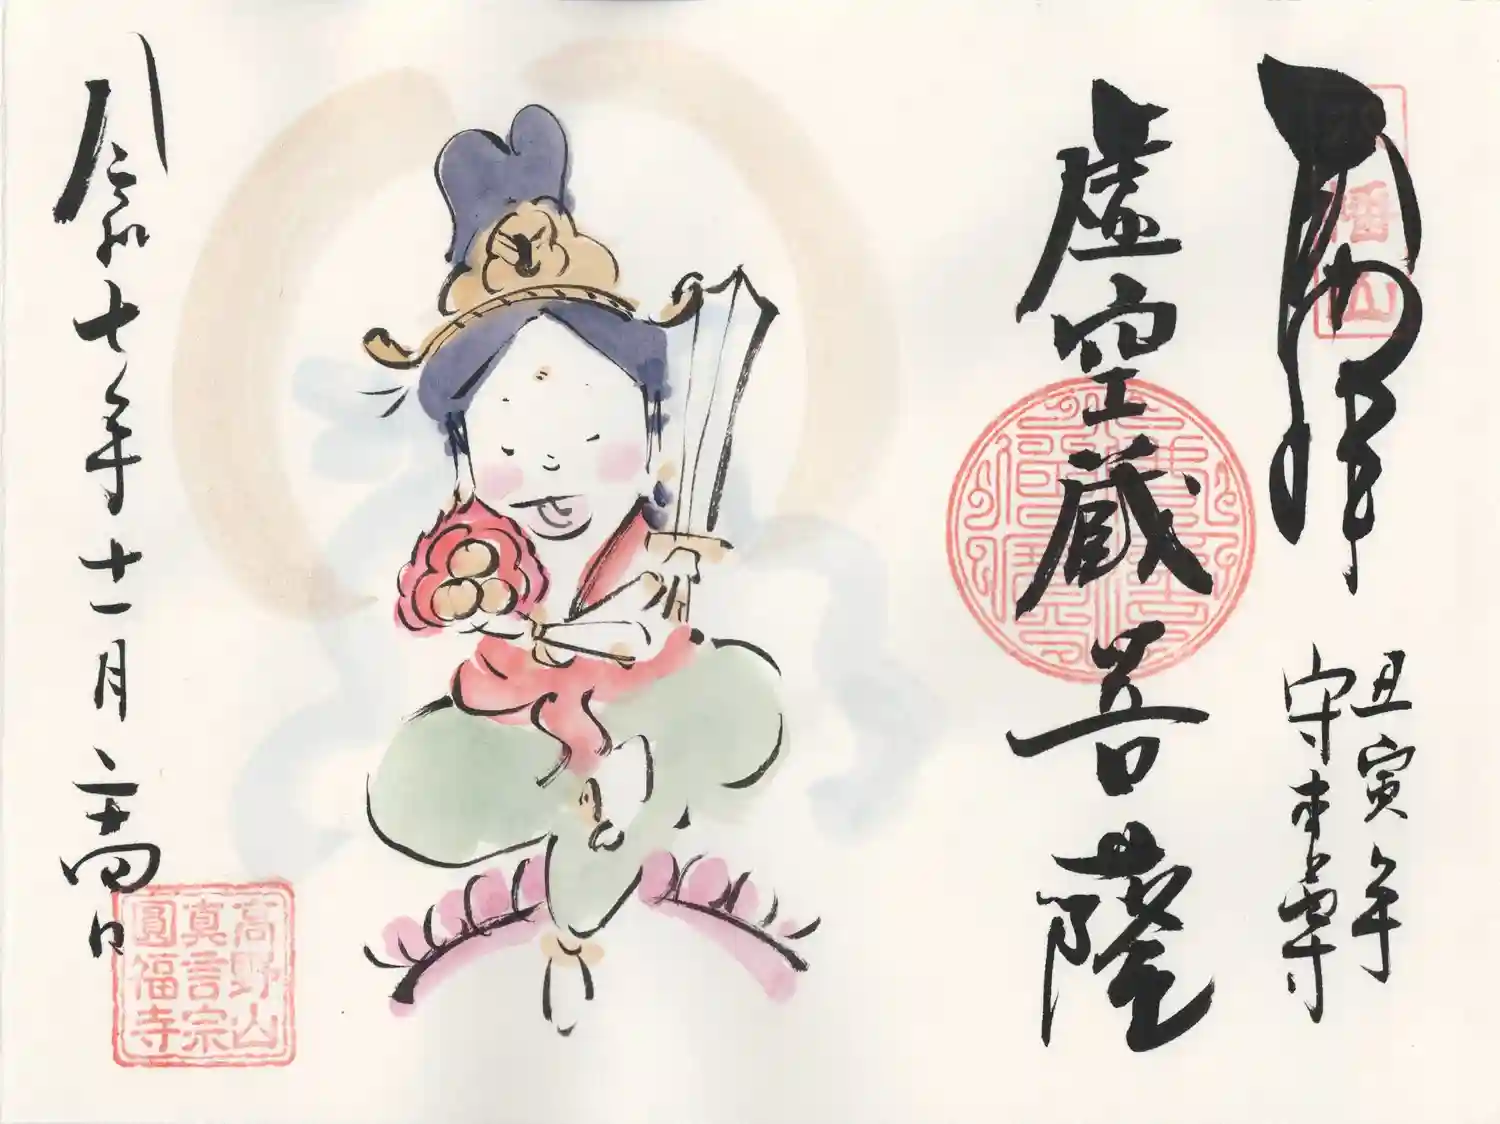 奉拝
丑寅年
守本尊
虚空蔵菩薩
令和七年十一月二十四日
高野山
真言宗
圓福寺